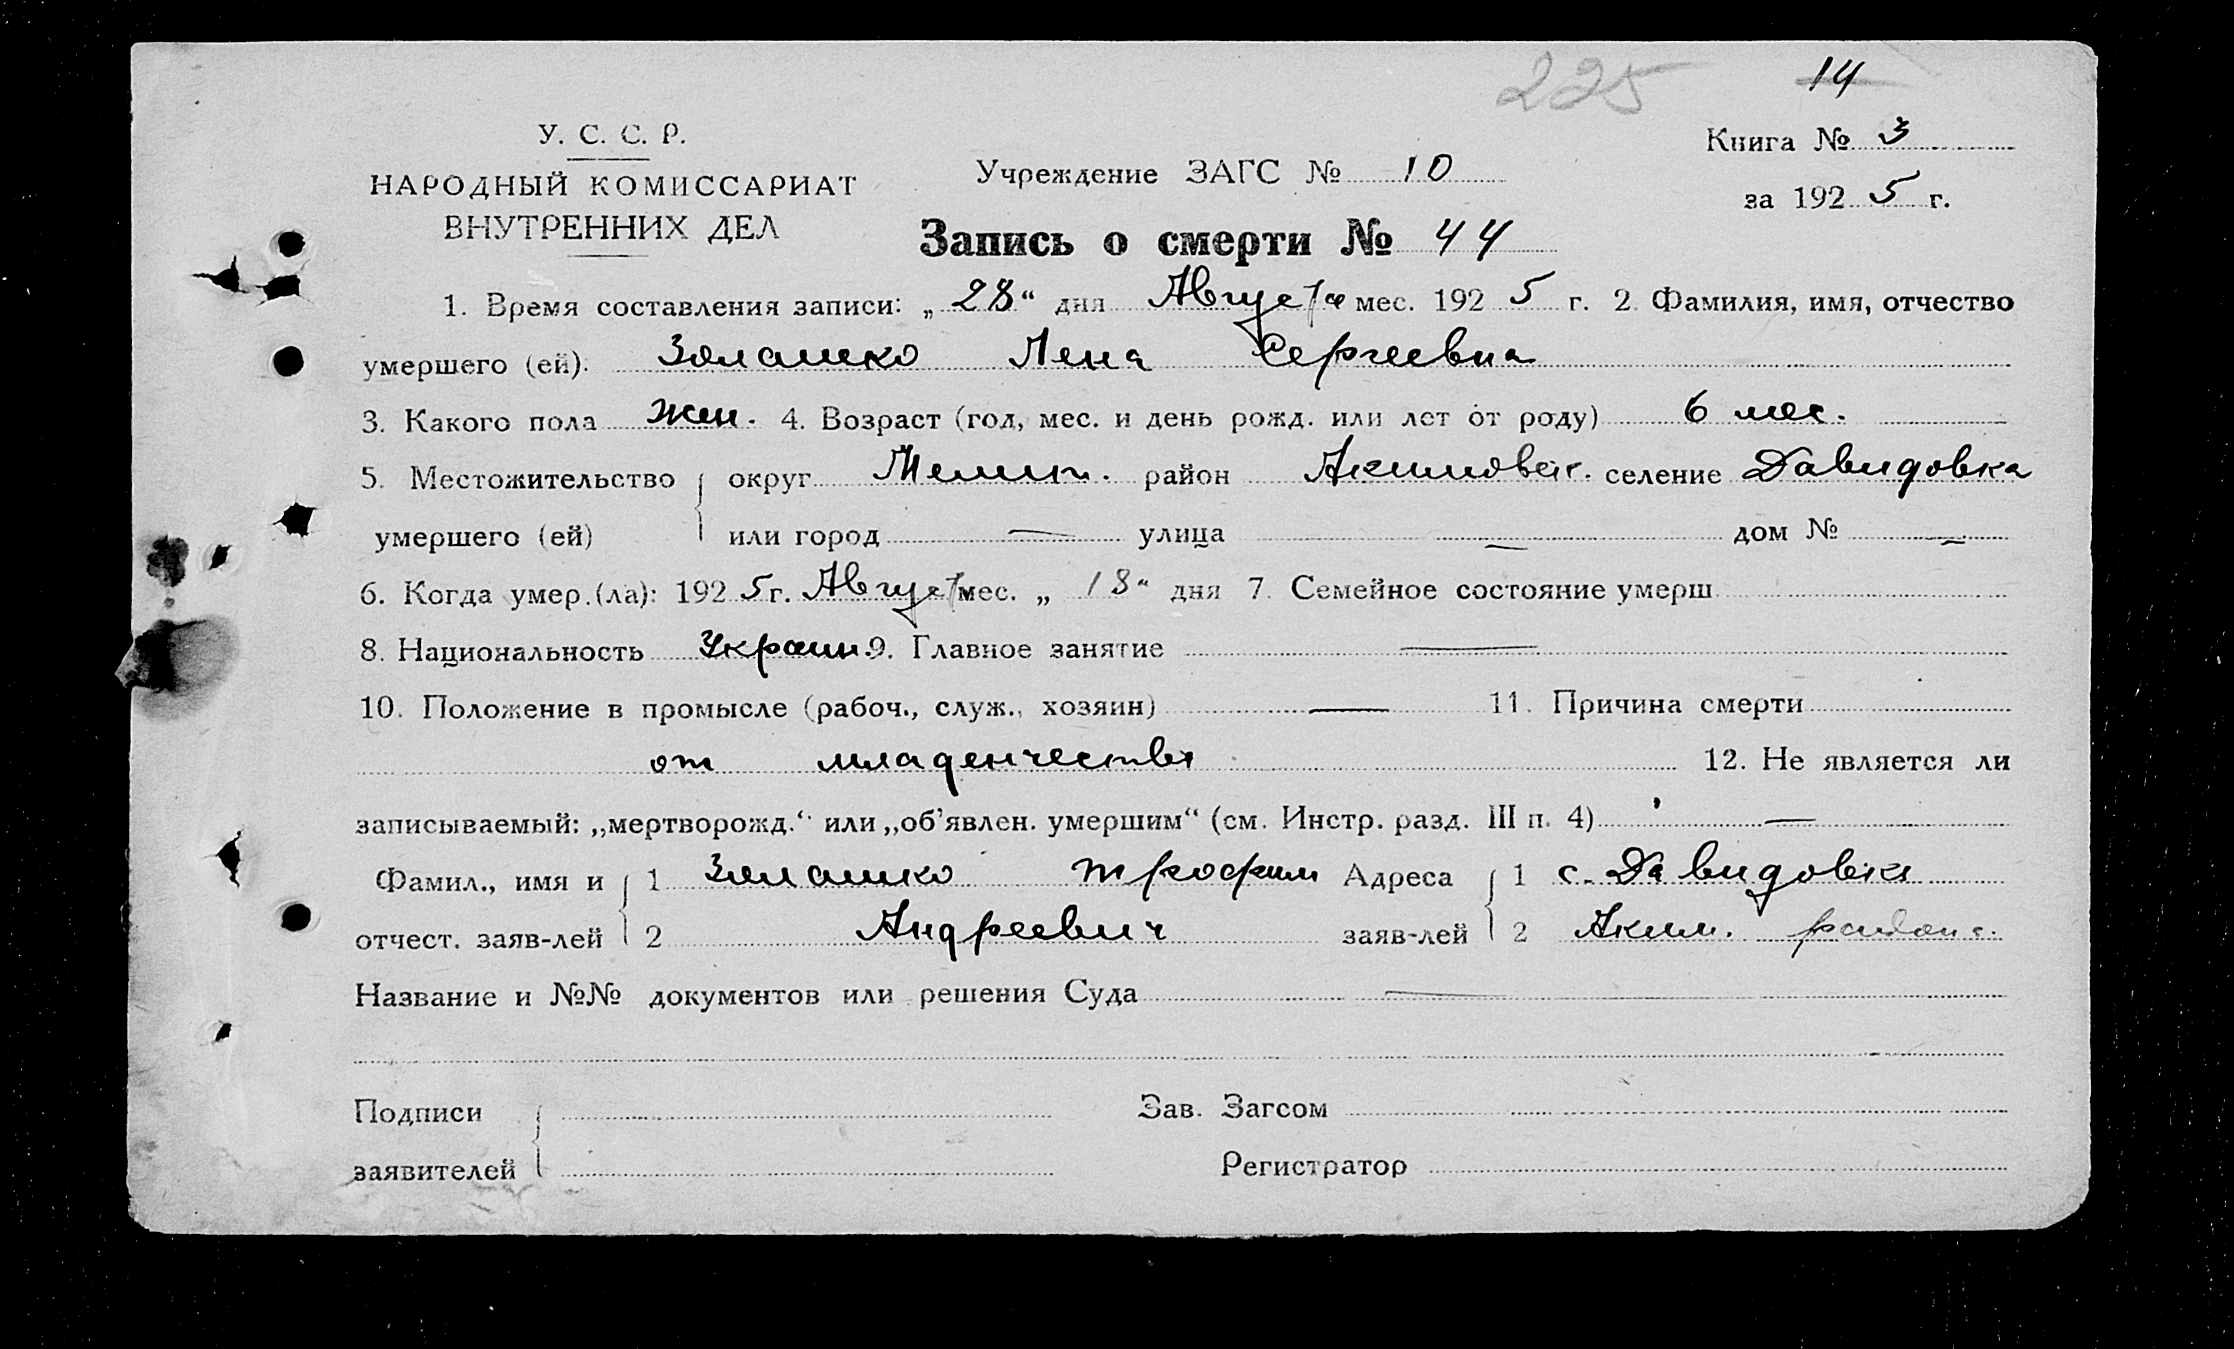 225
14
У. С. С. Р.
Книга № 3
НАРОДНЫЙ КОМИССАРИАТ
Учреждение ЗАГС № 10
за 192 5 г.
ВНУТРЕННИХ ДЕЛ
Запись о смерти № 44
1. Время составления записи: „ 28 “ дня Августа мес. 192 5 г. 2. Фамилия, имя, отчество
умершего (ей): Лена Сергеевна
3. Какого пола жен. 4. Возраст (год, мес. и день рожд. или лет от роду) 6 мес.
5. Местожительство округ Мелит. район Акимовск. селение Давидовка
умершего (ей) или город — улица — дом № —
6. Когда умер.(ла): 192 5 г. Август мес. „ 18 “ дня 7. Семейное состояние умерш
8. Национальность Украин. 9. Главное занятие —
10. Положение в промысле (рабоч., служ., хозяин) — 11. Причина смерти
от младенчества 12. Не является ли
записываемый: „мертворожд.“ или „об’явлен. умершим“ (см. Инстр. разд. III п. 4) —
Фамил., имя и 1 Трофим Адреса 1 с. Давидовка
отчест. заяв-лей 2 Андреевич заяв-лей 2 Аким. района.
Название и №№ документов или решения Суда —
Подписи Зав. Загсом
заявителей Регистратор